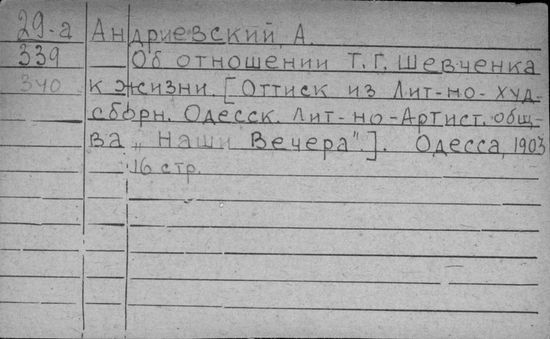 29-а Андриевский, А.
339 Об отношении Т. Г. Шевченка
340 к жизни. [Оттиск из Лит-но-худ-
сборн. Одесск. Лит-но-Артист. общ-
ва „Наши Вечера".]. Одесса, 1903
16 стр.